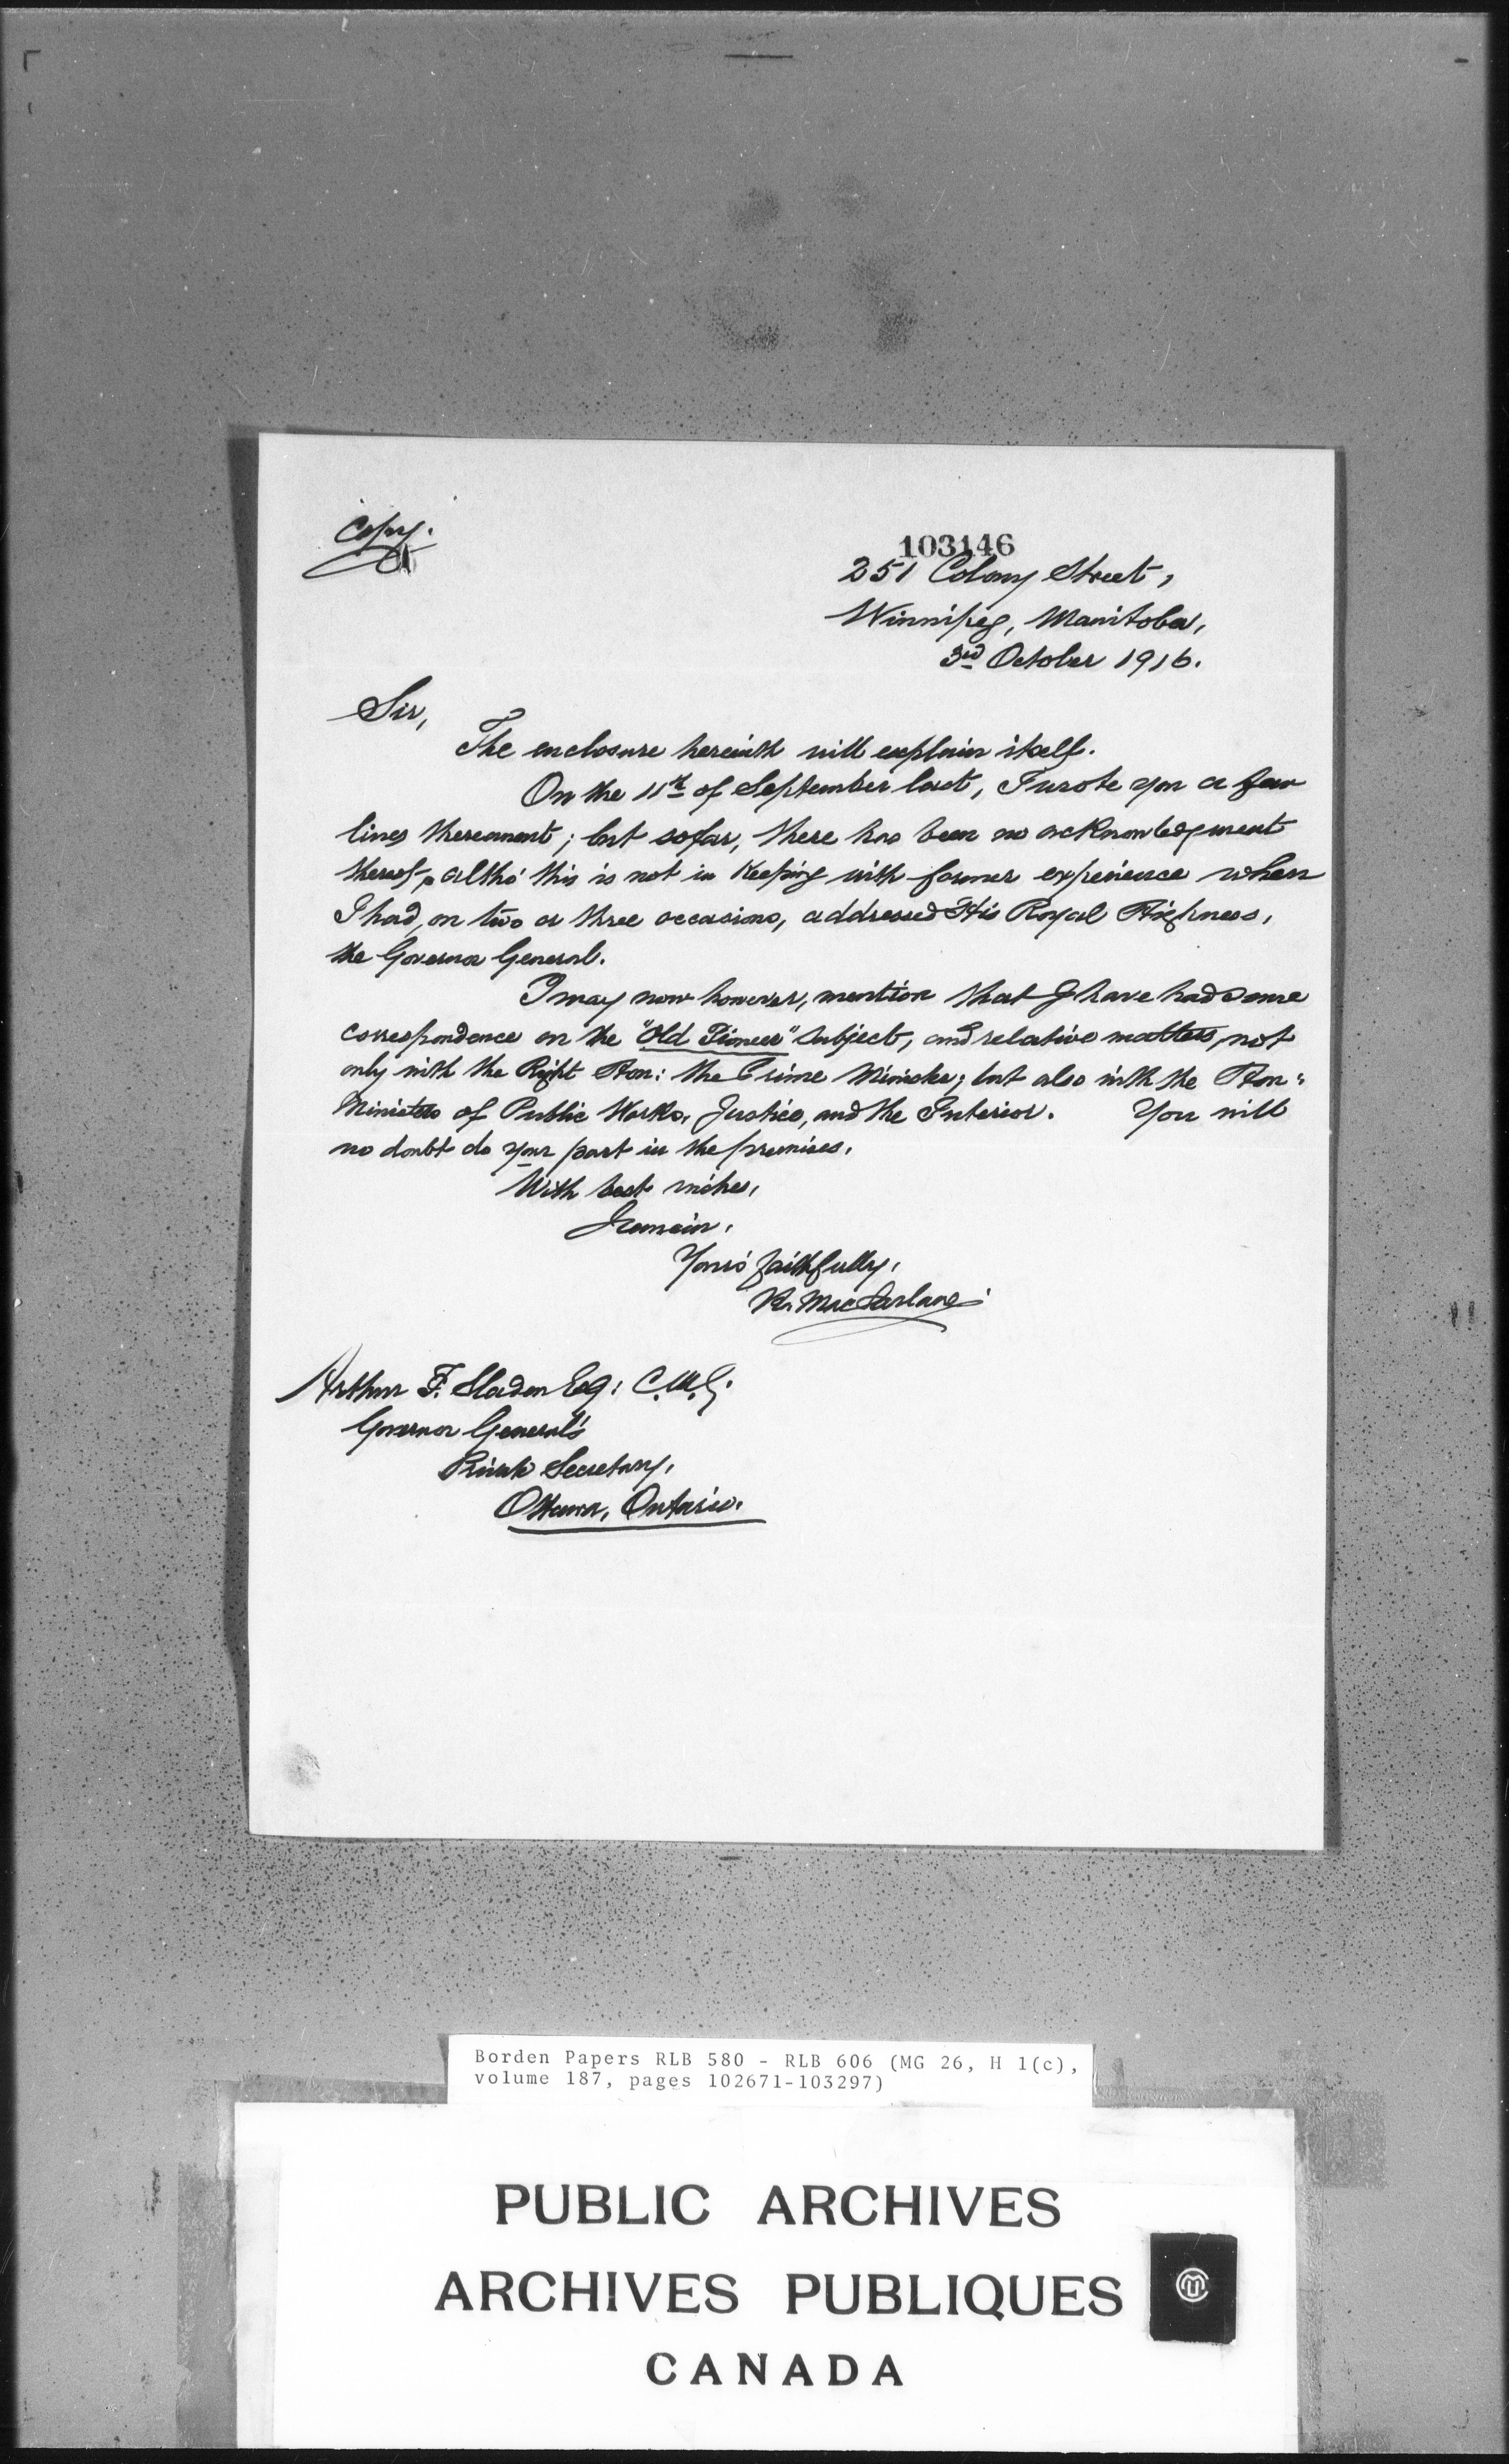 Copy.
103146
251 Colony Street,
Winnipeg, Manitoba,
3rd October 1916.
Sir,
The enclosure herewith will explain itself.
On the 11th of September last, I wrote you a few
lines thereanent; but so far, there has been no acknowledgment
thereof, altho' this is not in Keeping with former experience when
I had, on two or three occasions, addressed His Royal Highness,
the Governor General.
I may now however, mention that I have had some
correspondence on the "Old Pioneer" subject, and relative matters, not
only with the Right Hon: the Prime Minister; but also with the Hon:
Ministers of Public Works, Justice, and the Interior. You will
no doubt do your part in the premises.
With best wishes,
I remain,
Yours faithfully,
R. MacFarlane
Arthur F. Sladen Esq: C.M.G.
Governor General's
Private Secretary,
Ottawa, Ontario.
Borden Papers RLB 580 - RLB 606 (MG 26, H 1(c),
volume 187, pages 102671-103297)
PUBLIC ARCHIVES
ARCHIVES PUBLIQUES
CANADA